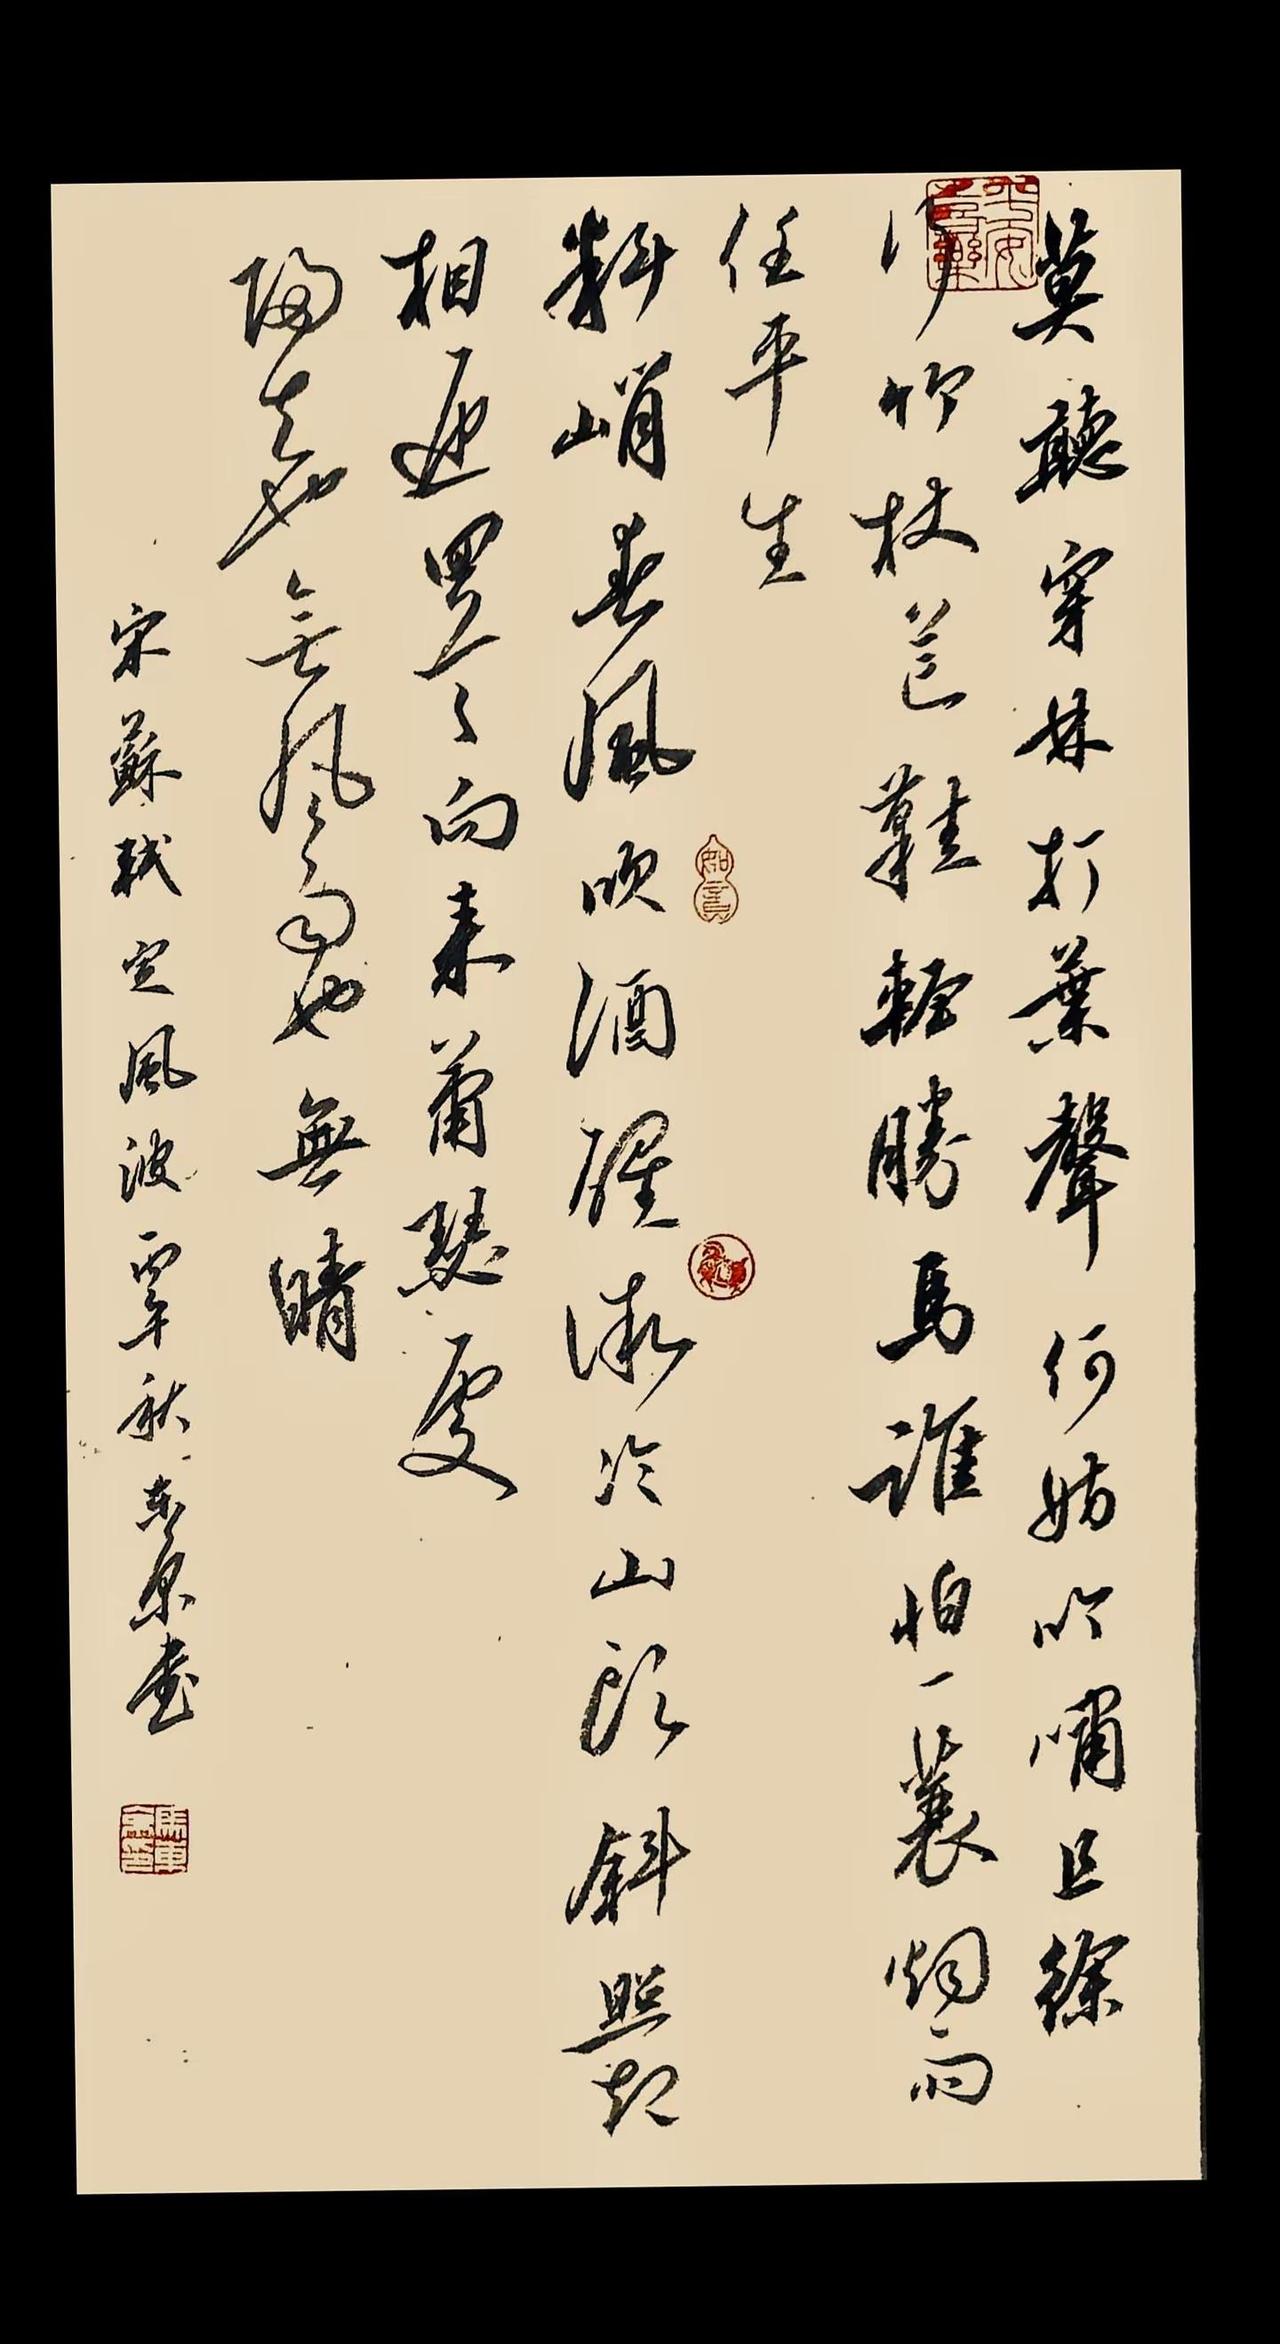 平安喜樂
莫聽穿林打葉聲何妨吟嘯且徐
行竹杖芒鞋輕勝馬誰怕一蓑烟雨
任平生
料峭春風吹酒醒微冷山頭斜照却
如意
相迎回首向来蕭瑟處
歸去也無風雨也無晴
宋蘇軾定風波秋東書